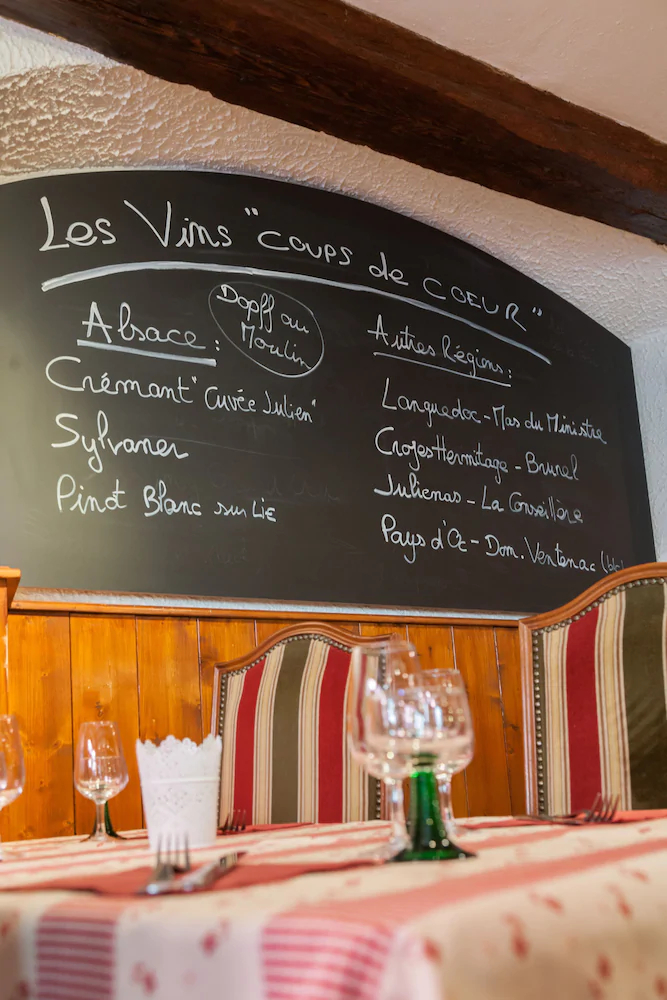 Les Vins "coups de COEUR"
Alsace:
Dopff au
Moulin
Crémant "Cuvée Julien"
Sylvaner
Pinot Blanc sur LiE
Autres Régions:
Languedoc - Mas du Ministre
CrozesHermitage - Brunel
Julienas - La Conseillère
Pays d'Oc - Dom. Ventenac